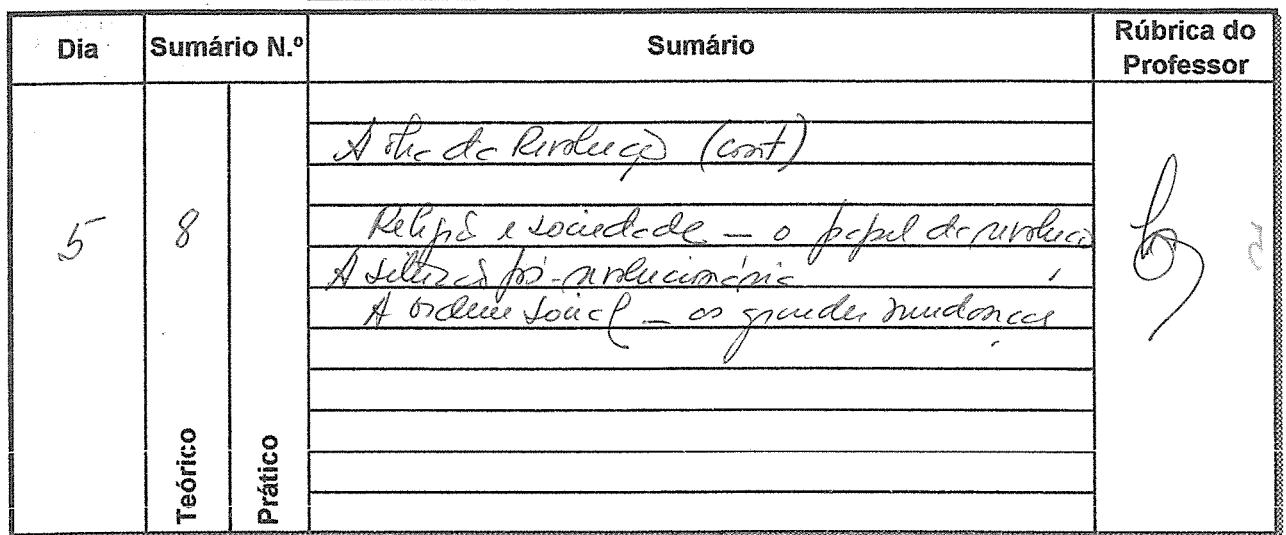 Dia Sumário N.º Sumário Rúbrica do Professor
5 8
A da Revolução (cont)
Religião e sociedade — o papel da revolução
A situação pós-revolucionária
A ordem social — as grandes mudanças
Teórico Prático